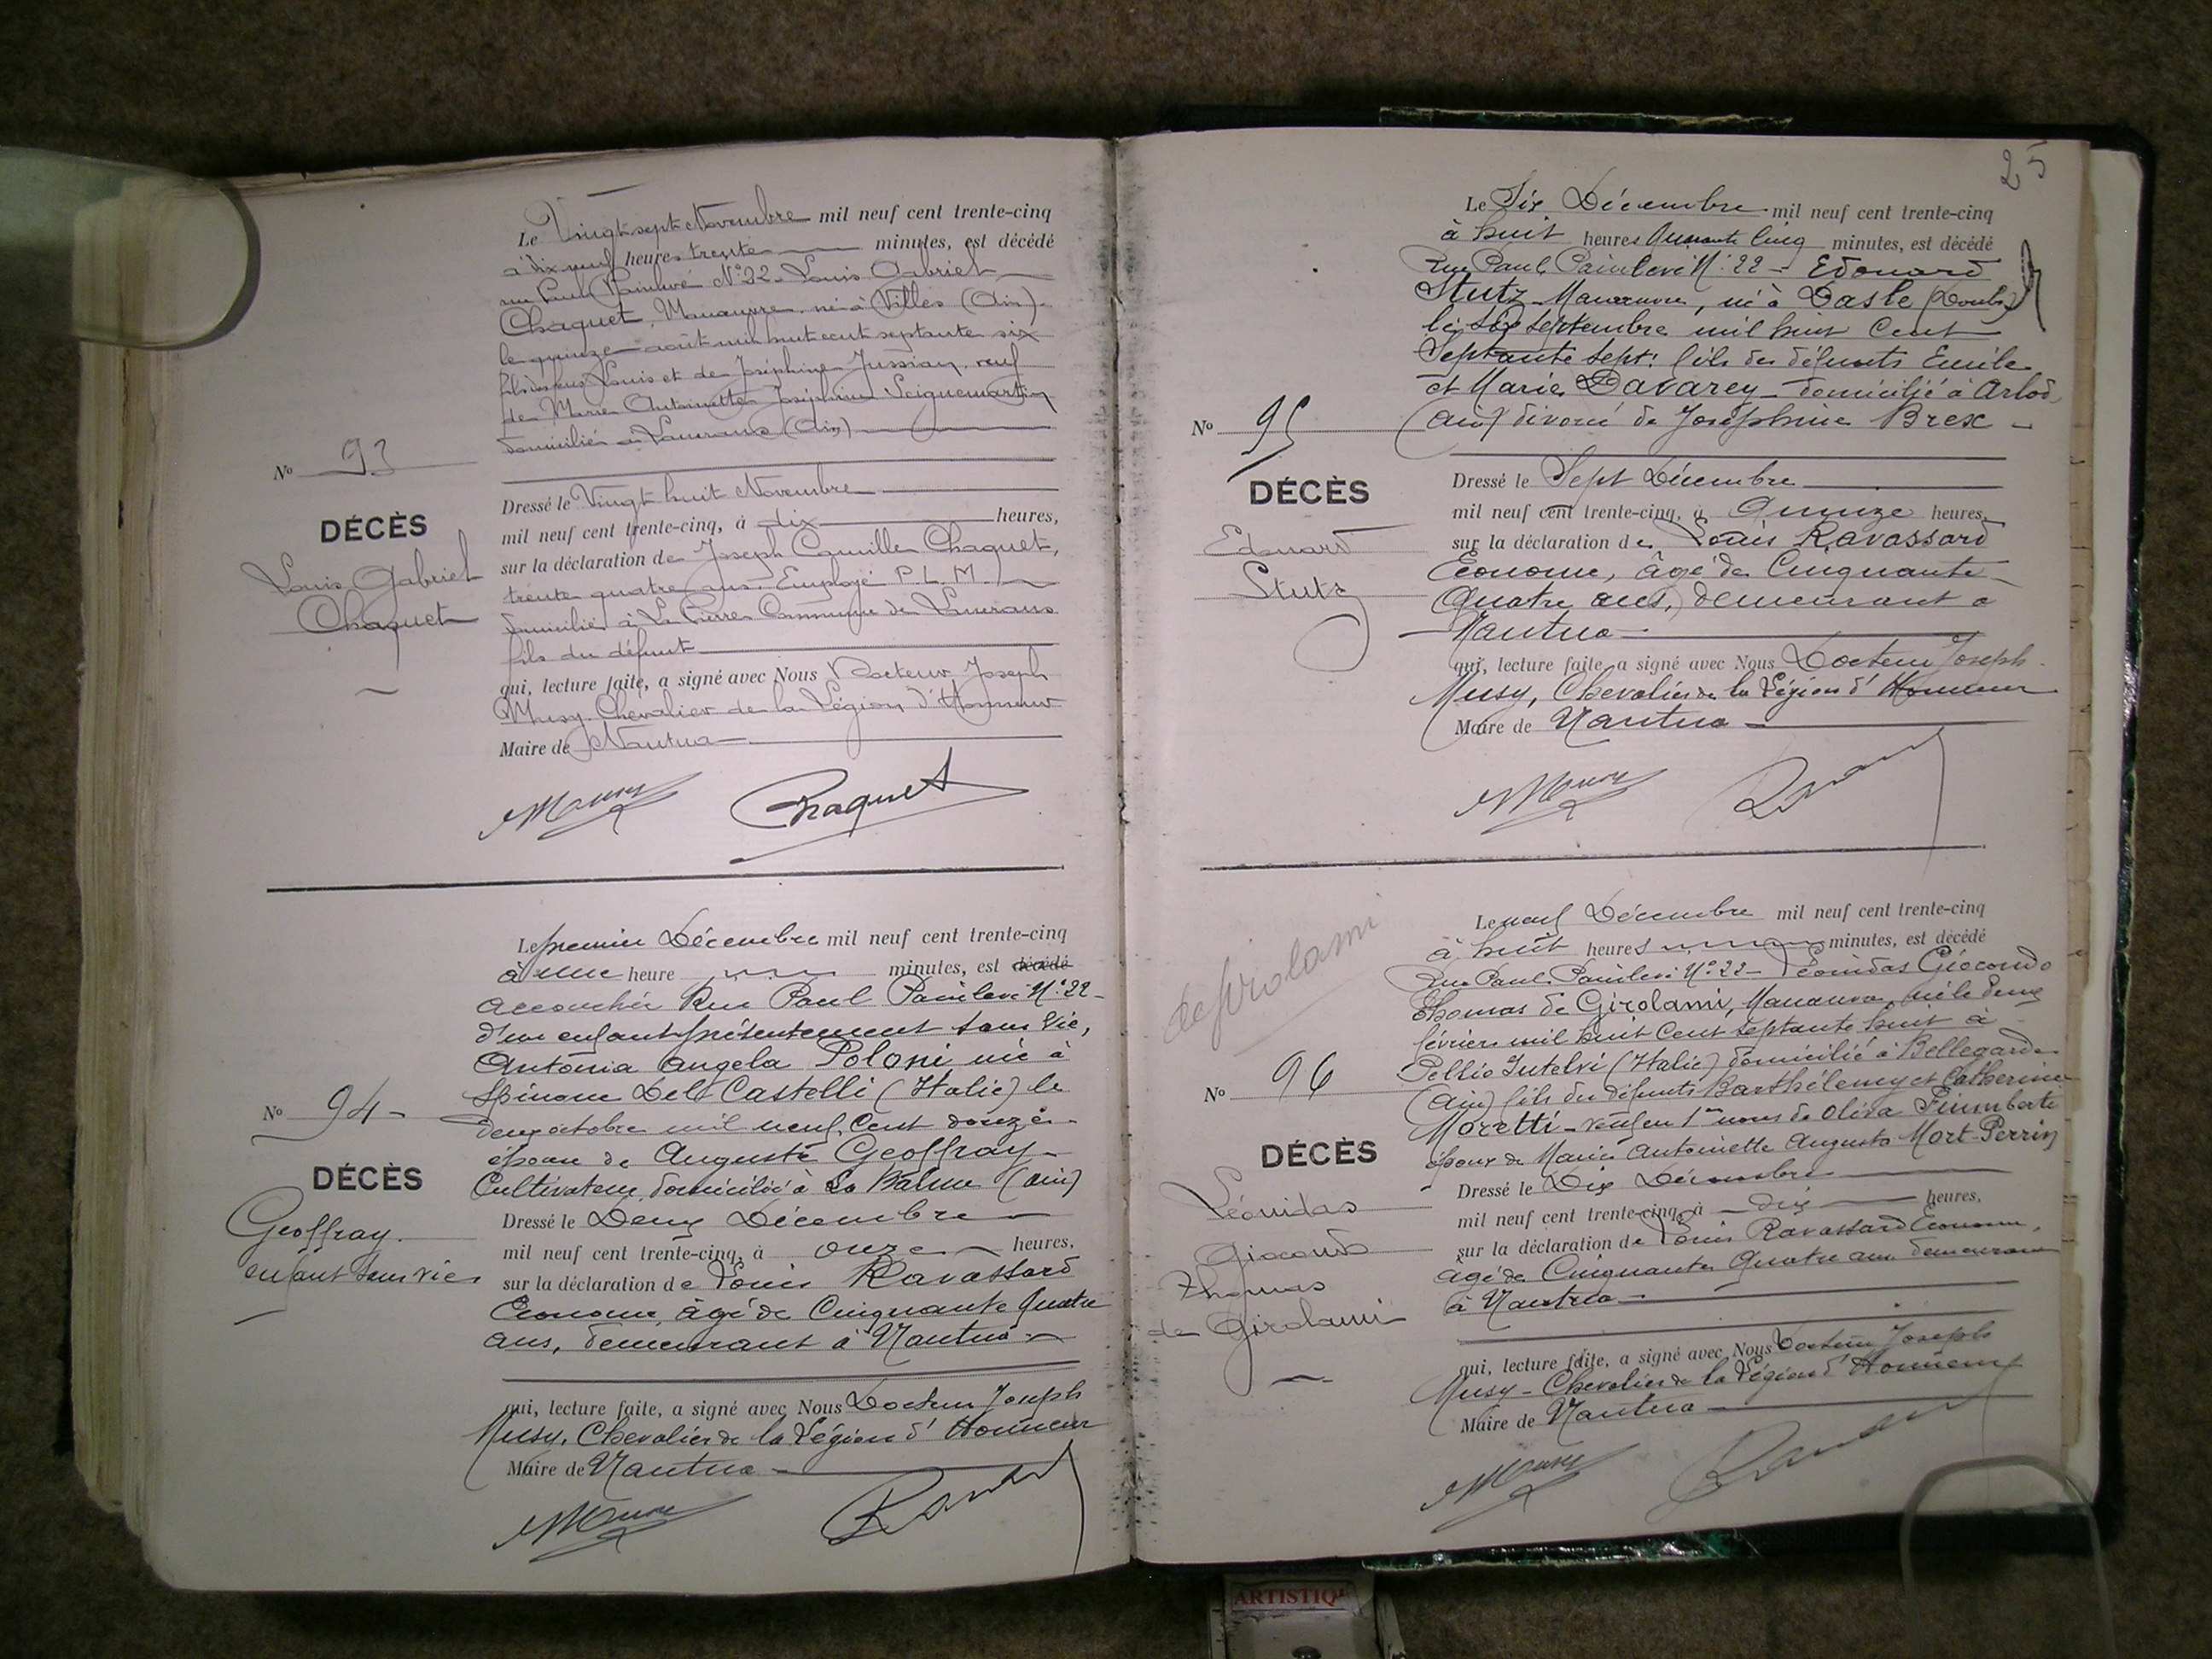 Le Vingt sept Novembre mil neuf cent trente-cinq
à dix neuf heures trente minutes, est décédé
rue Paul Painlevé N° 22 - Louis Gabriel
Chaquet, Manœuvre, né à Villes (Ain).
le quinze août mil huit cent septante six
fils des feus Louis et de Joséphine Jussian, veuf
de Marie Antoinette Joséphine Seignemartin
domicilié à (Ain)
No 93
DÉCÈS
Louis Gabriel
Chaquet
Dressé le Vingt huit Novembre
mil neuf cent trente-cinq, à dix heures,
sur la déclaration de Joseph Camille Chaquet,
trente quatre ans. Employé P. L. M.
domicilié à La Pierre Commune de
fils du défunt
qui, lecture faite, a signé avec Nous Docteur Joseph
Musy. Chevalier de la Légion d'Honneur
Maire de Nantua
Chaquet
Le premier Décembre mil neuf cent trente-cinq
à une heure minutes, est décédé
accouchée Rue Paul Painlevé N° 22 -
d'un enfant présentement sans vie,
Antonia Angela Poloni née à
Spinone Dei Castelli (Italie) le
deux octobre mil neuf cent douze -
épouse de Auguste Geoffray -
Cultivateur, domicilié à La Balme (ain)
No 94 -
DÉCÈS
Geoffray.
enfant sans vie
Dressé le Deux Décembre
mil neuf cent trente-cinq, à onze heures,
sur la déclaration de Louis Ravassard
Econome, âgé de Cinquante Quatre
ans, demeurant à Nantua -
qui, lecture faite, a signé avec Nous Docteur Joseph
Musy, Chevalier de la Légion d'Honneur
Maire de Nantua -
25
Le Six Décembre mil neuf cent trente-cinq
à huit heures Quarante Cinq minutes, est décédé
Rue Paul Painlevé N° 22 - Edouard
Stutz - Manœuvre, né à Dasle (Doubs)
le Six Septembre mil huit Cent
Septante Sept: fils des défunts Emile
et Marie Davarey - domicilié à Arlod
(ain) divorcé de Joséphine Brex -
No 95
DÉCÈS
Edouard
Stutz
Dressé le Sept Décembre
mil neuf cent trente-cinq, à Quinze heures,
sur la déclaration de Louis Ravassard
Econome, âgé de Cinquante
Quatre ans, demeurant à
Nantua -
qui, lecture faite, a signé avec Nous Docteur Joseph
Musy, Chevalier de la Légion d'Honneur
Maire de Nantua -
de Girolami
Le neuf Décembre mil neuf cent trente-cinq
à huit heures minutes, est décédé
Rue Paul Painlevé N° 22 - Léonidas Giocondo
Thomas de Girolami, Manœuvre, né le deux
février mil huit Cent septante huit à
Pellio Intelvi (Italie) domicilié à Bellegarde
(ain) fils des défunts Barthélemy et Catherine
Moretti - veuf en 1ères noces de Oliva
époux de Marie Antoinette Augusta Mort-Perrin
No 96
DÉCÈS
Léonidas
Giocondo
Thomas
de Girolami
Dressé le Dix Décembre
mil neuf cent trente-cinq, à dix heures,
sur la déclaration de Louis Ravassard Econome,
âgé de Cinquante Quatre ans demeurant
à Nantua -
qui, lecture faite, a signé avec Nous Docteur Joseph
Musy - Chevalier de la Légion d'Honneur
Maire de Nantua -
ARTISTIQ